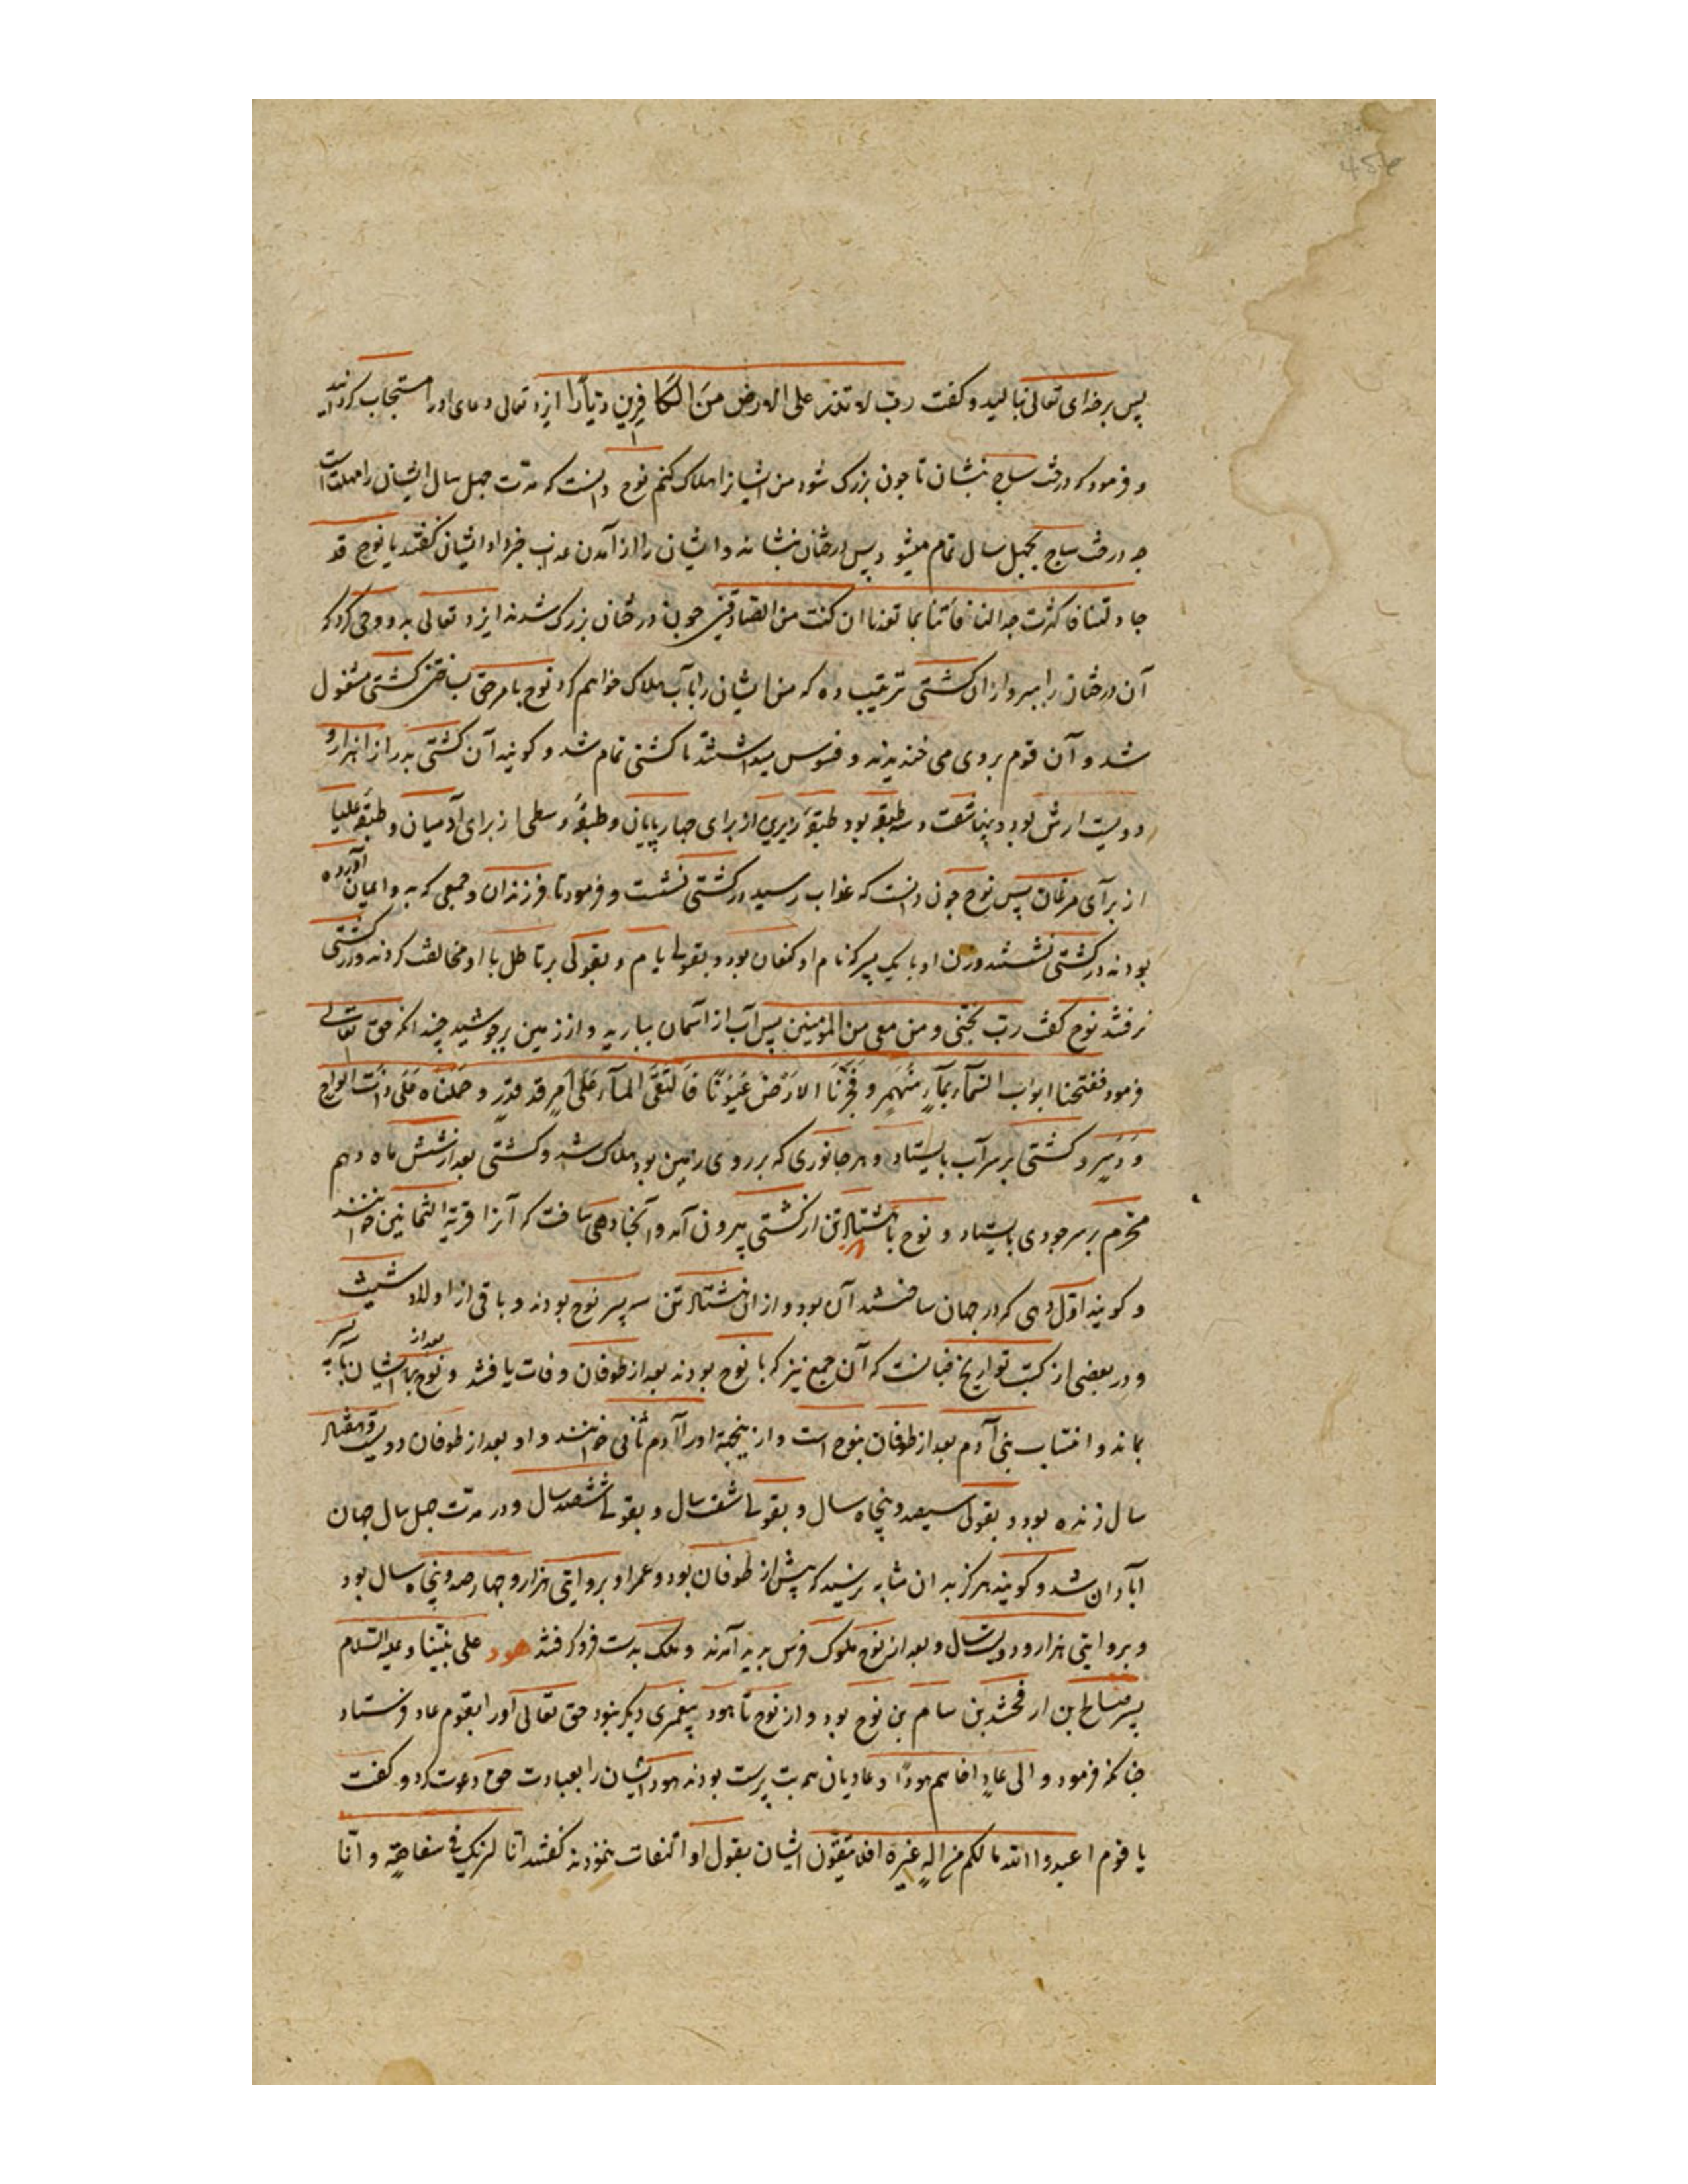 پس برخدای تعالی نبالید و کفت رب لا تذر علی الارض مِنَ الکَافِرِینَ دَیَّارًا ایزد تعالی دعای اورا مستجاب کردانید
و فرمود که درخت ساج بنشان تا چون بزرک شود من ایشانرا هلاک کنم نوح دانست که مدّت چهل سال ایشان را مهلتست
چه درخت ساج بچهل سال تمام میشود پس درختان بنشاند و ایشان را از آمدن عذاب خبر داد ایشان کفتند یا نوح قد
جادلتنا فاکثرت جدالنا فأتنا بما تعدنا ان کنت من الصّادقین چون درختان بزرک شدند ایزد تعالی بدو وحی کرد که
آن درختان را ببر و از ان کشتی ترتیب ده که من ایشان را بآب هلاک خواهم کرد نوح بامر حق بساختن کشتی مشغول
شد و آن قوم بروی می خندیدند و فسوس میداشتند تا کشتی تمام شد و کویند آن کشتی بدرازا هزار و
دویست ارش بود و بپهنا ششصت و سه طبقه بود طبقهٔ زیرین از برای چهارپایان و طبقهٔ وسطی از برای آدمیان و طبقهٔ علیا
از برآی مرغان پس نوح چون دانست که عذاب رسید در کشتی نشست و فرمود تا فرزندان و جمعی که بدو ایمان آورده
بودند در کشتی نشستند و زن او با یک پسر که نام او کنعان بود و بقولی یام و بقولی برتاطل با او مخالفت کردند و در کشتی
نرفتند نوح کفت ربّ نجّنی و من معی من المؤمنین پس آب از آسمان ببارید و از زمین برجوشید چندانکه حق تعالی
فرمود ففتحنا ابواب السّمآء بمآءٍ مُنْهَمِرٍ و فَجَّرْنَا الاَرْضَ عُیُونًا فَالْتَقَی المآءُ عَلَی اَمرٍ قد قدِرٍ و حَمَلْنَاه عَلَی ذاتِ الواحٍ
وَ دُسُرٍ و کشتی بر سر آب بایستاد و هر جانوری که بر روی زمین بود هلاک شد و کشتی بعد از شش ماه دهم
محرّم بر سر جودی بایستاد و نوح با هشتاد تن از کشتی بیرون آمد و آنجا دهی ساخت که آنرا قریة الثمانین خوانند
و کویند اوّل دهی که در جهان ساختند آن بود و از ان هشتاد تن سه پسر نوح بودند و باقی از اولاد شیث
و در بعضی از کتب تواریخ چنانست که آن جمع نیز که با نوح بودند بعد از طوفان وفات یافتند و نوح بعد از ایشان با سه پسر
بماند و انتساب بنی آدم بعد از طوفان بنوح است و از ینجهة اورا آدم ثانی خوانند و او بعد از طوفان دویست و هفتاد
سال زنده بود و بقولی سیصد و پنجاه سال و بقولی شصت سال و بقولی ششصد سال و در مدّت چهل سال جهان
آبادان شد و کویند هرکز به ان مثابه نرسید که پیش از طوفان بود و عمر او بروایتی هزار و چهارصد و پنجاه سال بود
و بروایتی هزار و دویست سال و بعد از نوح ملوک فرس بدید آمدند و ملک بدست فرو کرفتند هود علی نبیّنا و علیه السّلام
پسر صالح بن ارفخشد بن سام بن نوح بود و از نوح تا هود پیغمبری دیکر نبود حق تعالی اورا بقوم عاد فرستاد
چنانکه فرمود و الی عادٍ اخاهم هودًا و عادیان همه بت پرست بودند هود ایشان را بعبادت حق دعوت کرد و کفت
یا قوم اعبدوا الله ما لکم من الهٍ غیره افلا تتّقون ایشان بقول او التفات ننمودند کفتند انّا لنریک فی سفاهةٍ و انّا